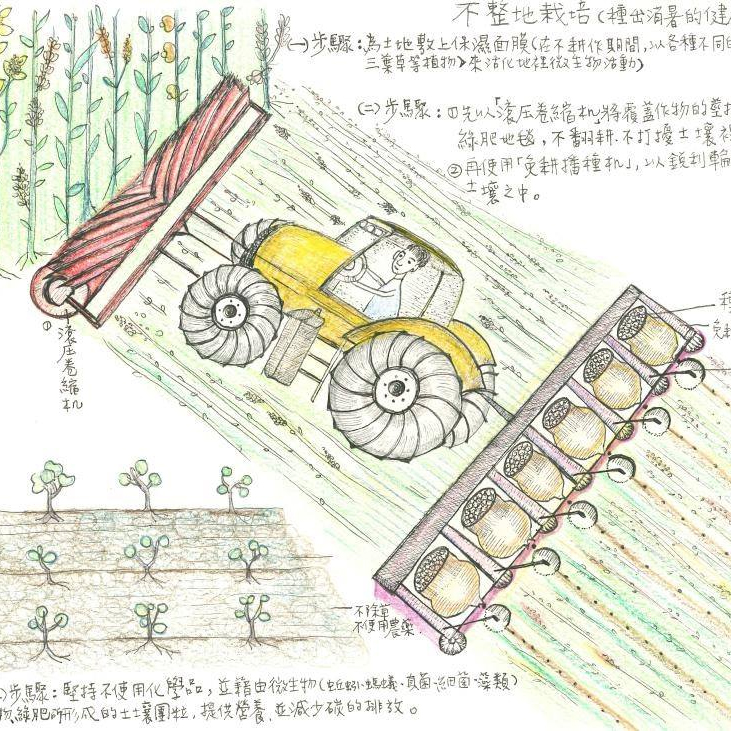 不整地栽培(種出消暑的健
(一)步驟:為土地敷上保濕面膜(在不耕作期間,以各種不同的
三葉草等植物)來活化地裡微生物活動)
(二)步驟:①先以「滾压卷縮机」將覆蓋作物的莖
綠肥地毯,不翻耕.不打擾土壤裡
②再使用「免耕播種机」,以銳利輪
土壤之中。
種
免耕
①滾压卷縮机
不除草
不使用農藥
)步驟:堅持不使用化學品,並藉由微生物(蚯蚓、螞蟻、真菌、細菌、藻類)
物綠肥所形成的土壤團粒,提供營養、並減少碳的排放。